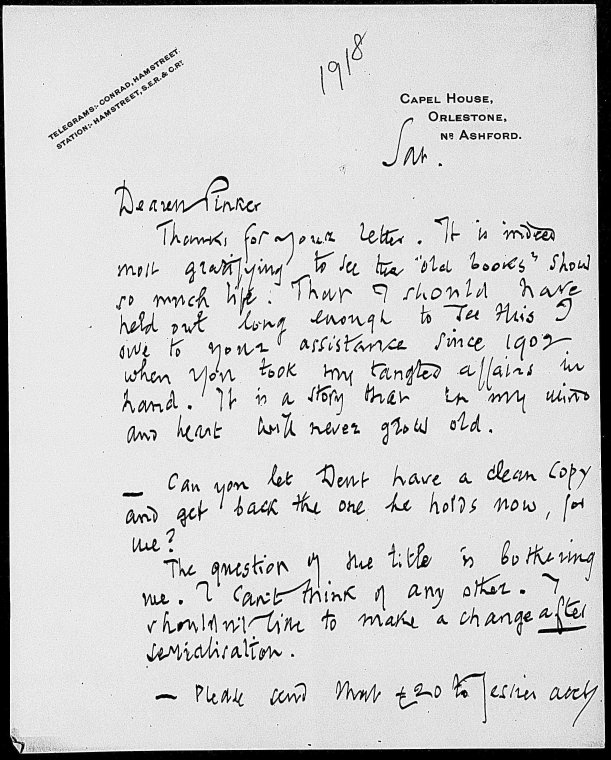 TELEGRAMS:- CONRAD, HAMSTREET.
STATION:- HAMSTREET, S.E.R. & C.RY.
1918
CAPEL HOUSE,
ORLESTONE,
NR ASHFORD.
Sat.
Dearest Pinker
Thanks for your letter. It is indeed
most gratifying to see the "old books" show
so much life. That I should have
held out long enough to see this I
owe to your assistance since 1902
when you took my tangled affairs in
hand. It is a story that in my mind
and heart will never grow old.
— Can you let Dent have a clean copy
and get back the one he holds now, for
me?
The question of the title is bothering
me. I can't think of any other. I
shouldn't like to make a change after
serialisation.
— Please send that £20 to Jessie's acct/